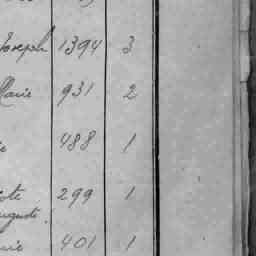 Joseph 1394 3
Marie 931 2
488 1
299 1
401 1